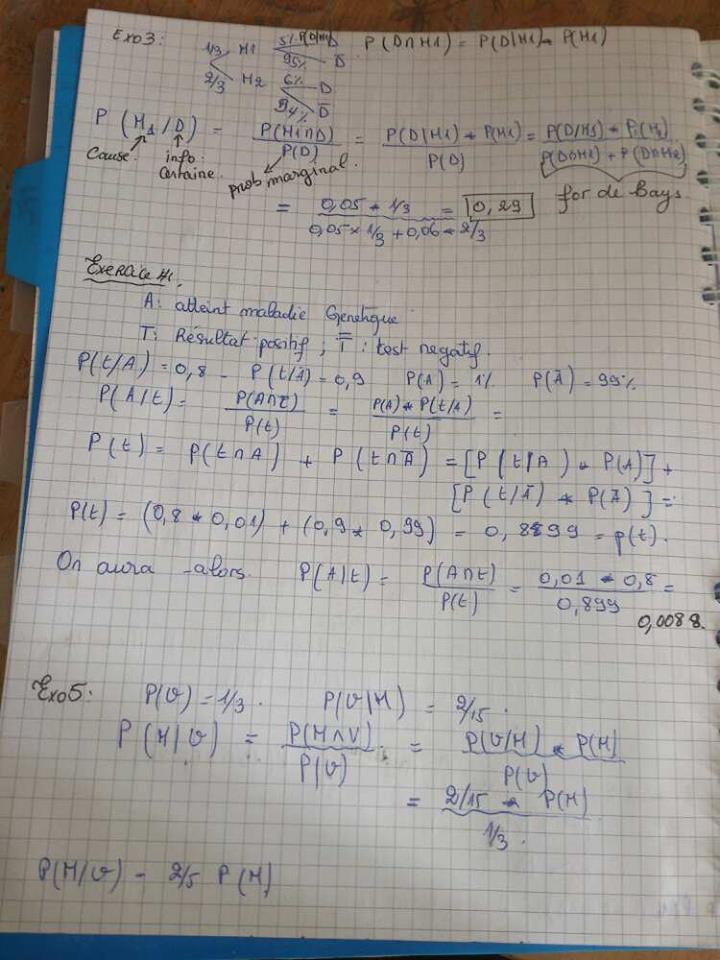 Exo3: 1/3 H1 5% P(D|H1) D P(D∩H1) = P(D|H1) * P(H1)
95% D̄
2/3 H2 6% D
94% D̄
P(H1/D) = P(H1∩D)/P(D) = P(D|H1) * P(H1)/P(D) = P(D/H1) * P(H1)/P(D∩H1) + P(D∩H2)
Cause. info. Certaine. prob marginal. for de Bays.
= 0,05 * 1/3 / 0,05 x 1/3 + 0,06 * 2/3 = 0,29
Exercice 4.
A: atteint maladie Genetique
T: Résultat positif ; T̄ : test negatif.
P(t/A) = 0,8 - P(t/Ā) = 0,9 P(A) = 1% P(Ā) = 99%
P(A/t) = P(A∩t)/P(t) = P(A) * P(t/A)/P(t) =
P(t) = P(t∩A) + P(t∩Ā) = [P(t/A) * P(A)] +
[P(t/Ā) * P(Ā)] =
P(t) = (0,8 * 0,01) + (0,9 * 0,99) = 0,8899 = p(t).
On aura alors. P(A|t) = P(A∩t)/P(t) = 0,01 * 0,8/0,899 =
0,0088.
Exo5: P(V) = 1/3. P(V|M) = 2/15.
P(M/V) = P(M∩V)/P(V) = P(V/M) * P(M)/P(V)
= 2/15 * P(M)/1/3.
P(M/V) - 2/5 P(M)